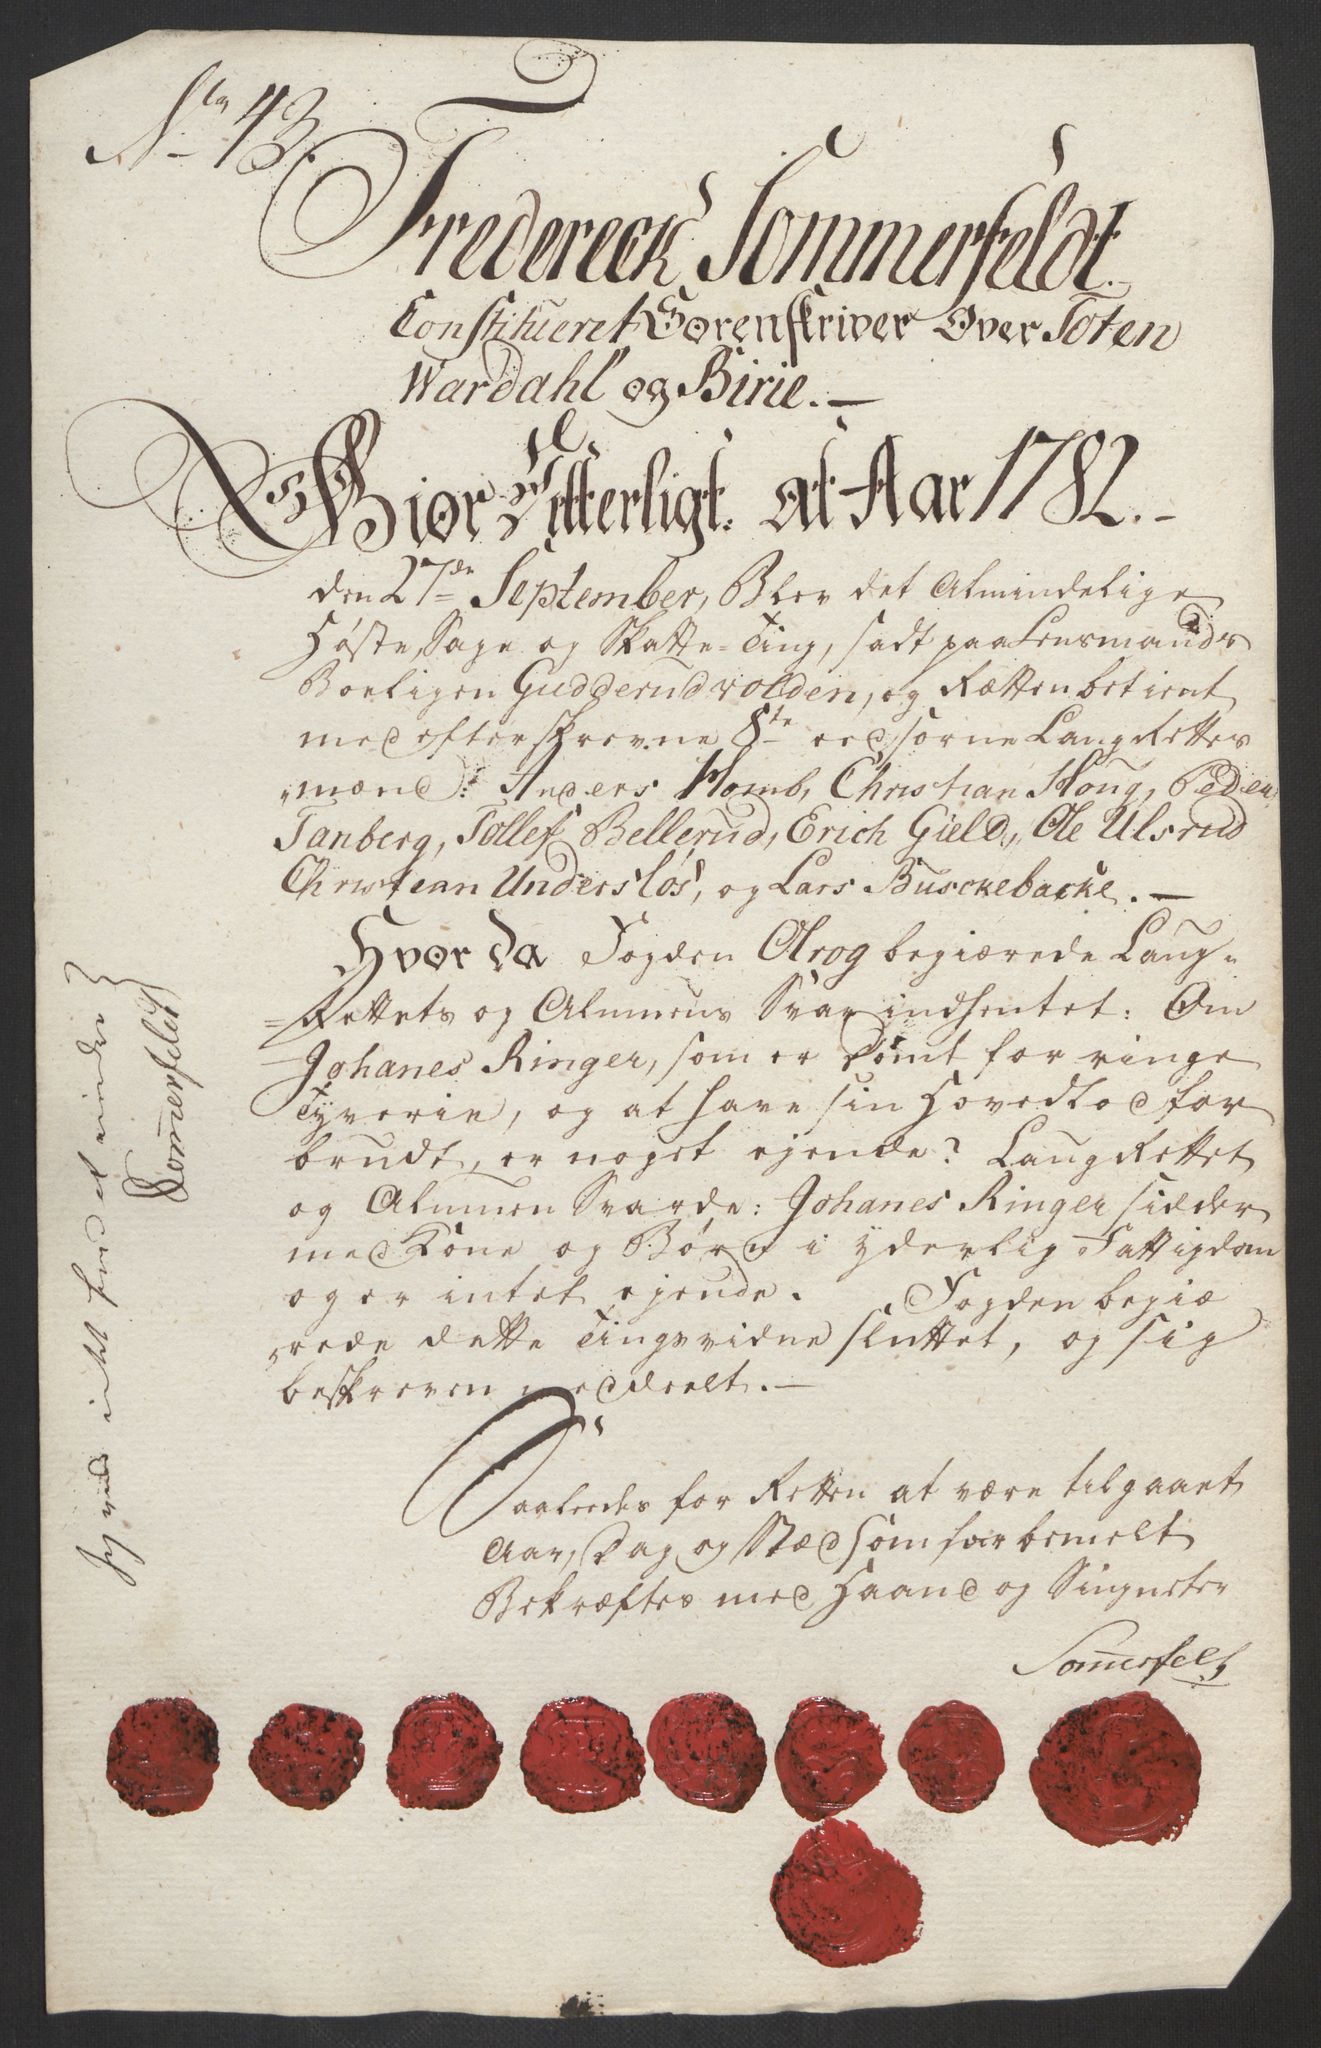 No 43.
Fredereck Sommerfeldt.
Constitueret Sorenskriver Over Toten
Wardahl og Birie. —
Giør Vitterligt. at Aar 1782. -
den 27de September, Blev det Almindelige
Høste, Sage og Skatte-Ting, sadt paa Lensmands
Boeligen Gudderudvolden, og Rætten betient
med efterskrevne 8te eedsorne LaugRettes
mænd: Anders Homb, Christian Houg, Peder
Tanberg, Tollef Bellerud, Erich Gield, Ole Ulsrud
Christean Undersløs, og Lars Busckebacke. —
Hvor da Fogden Arog begiærede Laug-
=Rettets og Almuens Svar indhentet: Om
Johanes Ringer, som er dømt for ringe
Tyverie, og at have sin Hovedlod for
brudt, er noget ejende? LaugRettet
og Almuen Svarde: Johanes Ringer sidder
med Kone og Børn i yderlig Fattigdom
og er intet ejende. Fogden begiæ
rede dette Tingsvidne sluttet, og sig
beskreven meddeelt. —
Saaleedes for Retten at være tilgaaet
Aar, Dag og Stæd som forbemelt
Bekræftes med Haand og Signeter
Somerfelt
Jeg veed intet herved at erindre
Somerfeldt